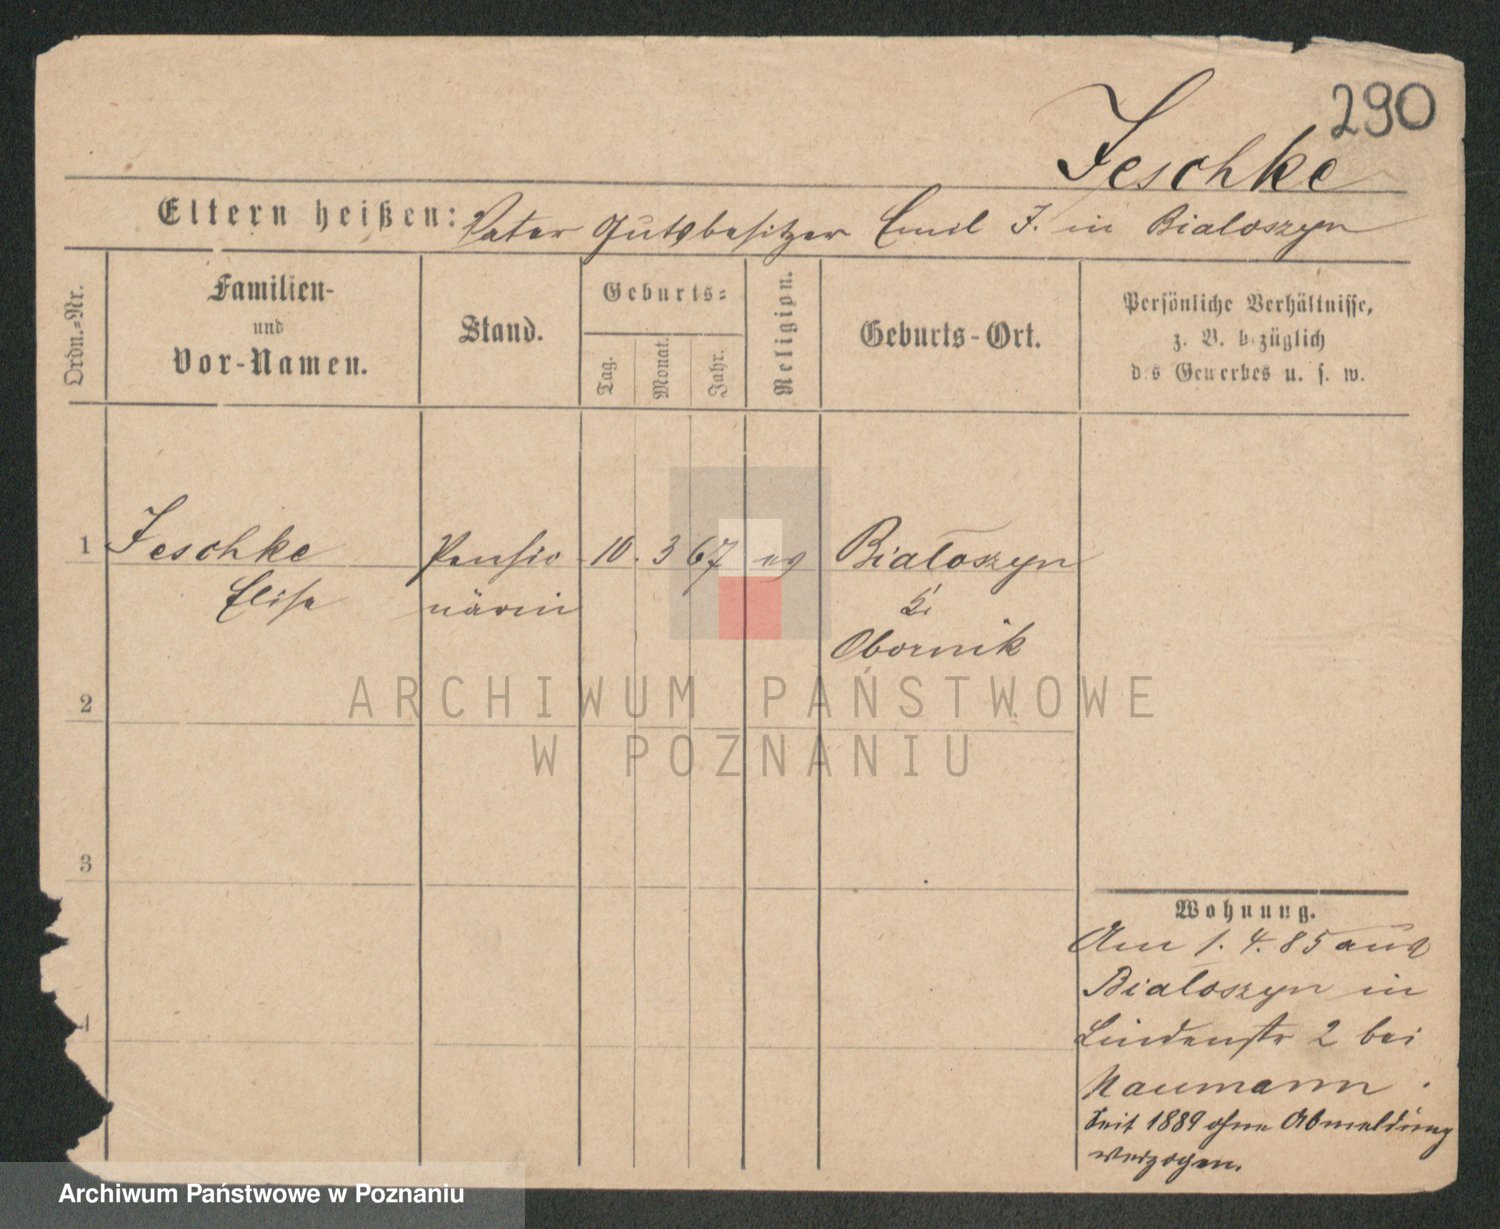 290
Jeschke
Eltern heißen: Vater Gutsbesitzer Emil J. in Bialoszyn
Ordn.=Nr.
Familien-
und
Vor-Namen.
Stand.
Geburts=
Tag.
Monat.
Jahr.
Religion.
Geburts-Ort.
Persönliche Verhältnisse,
z. B. bezüglich
des Gewerbes u. s. w.
1 Jeschke Pensio 10. 3 67 ev Bialoszyn
Elise närin
Kr.
Obornik
2
ARCHIWUM PAŃSTWOWE
W POZNANIU
3
Wohnung.
Am 1. 4. 85 aus
Bialoszyn in
4
Lindenstr 2 bei
Naumann.
Seit 1889 ohne Abmeldung
verzogen.
Archiwum Państwowe w Poznaniu